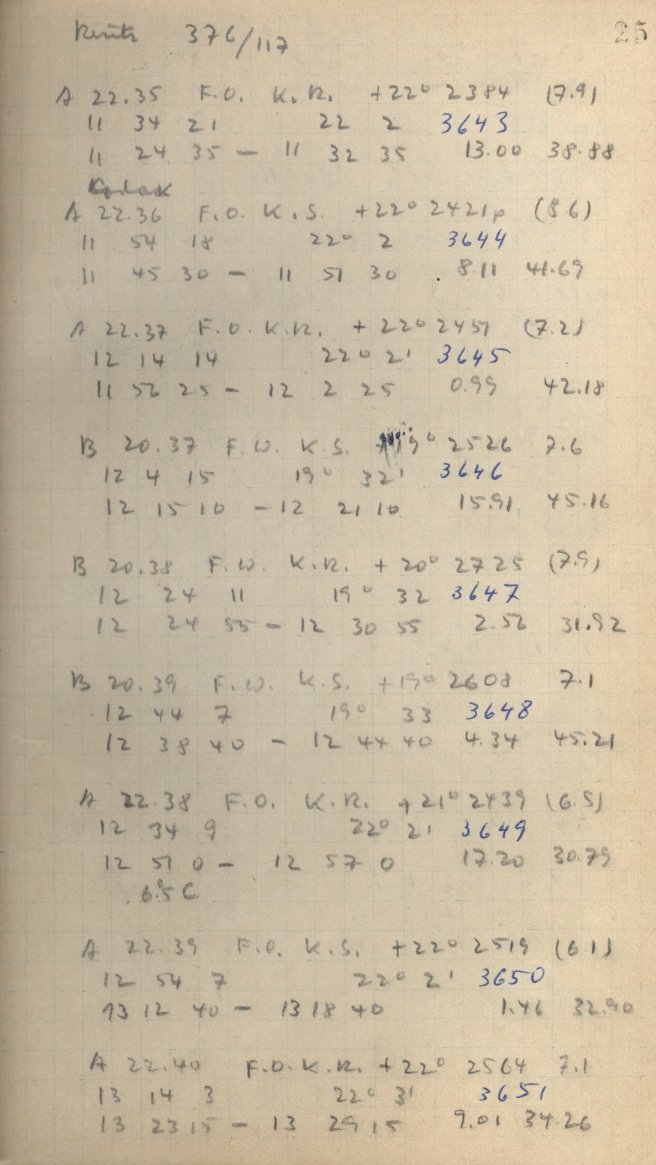 376/117 25
A 22.35 F.O. K.R. +22° 2384 (7.9)
11 34 21 22 2 3643
11 24 35 – 11 32 35 13.00 38.88
Kodak
A 22.36 F.O. K.S. +22° 2421p (8.6)
11 54 18 22° 2 3644
11 45 30 – 11 51 30 8.11 41.69
A 22.37 F.O. K.R. +22° 2451 (7.2)
12 14 14 22° 2' 3645
11 56 25 – 12 2 25 0.99 42.18
B 20.37 F.W. K.S. 19° 2526 7.6
12 4 15 19° 32' 3646
12 15 10 – 12 21 10 15.91 45.16
B 20.38 F.W. K.R. +20° 2725 (7.9)
12 24 11 19° 32 3647
12 24 55 – 12 30 55 2.52 31.92
B 20.39 F.W. K.S. +19° 2608 7.1
12 44 7 19° 33 3648
12 38 40 – 12 44 40 4.34 45.21
A 22.38 F.O. K.R. +21° 2439 (6.5)
12 34 9 22° 2' 3649
12 51 0 – 12 57 0 17.20 30.79
A 22.39 F.O. K.S. +22° 2519 (6.1)
12 54 7 22° 2' 3650
13 12 40 – 13 18 40 1.46 32.90
A 22.40 F.O. K.R. +22° 2564 7.1
13 14 3 22° 3' 3651
13 23 15 – 13 29 15 9.01 34.26